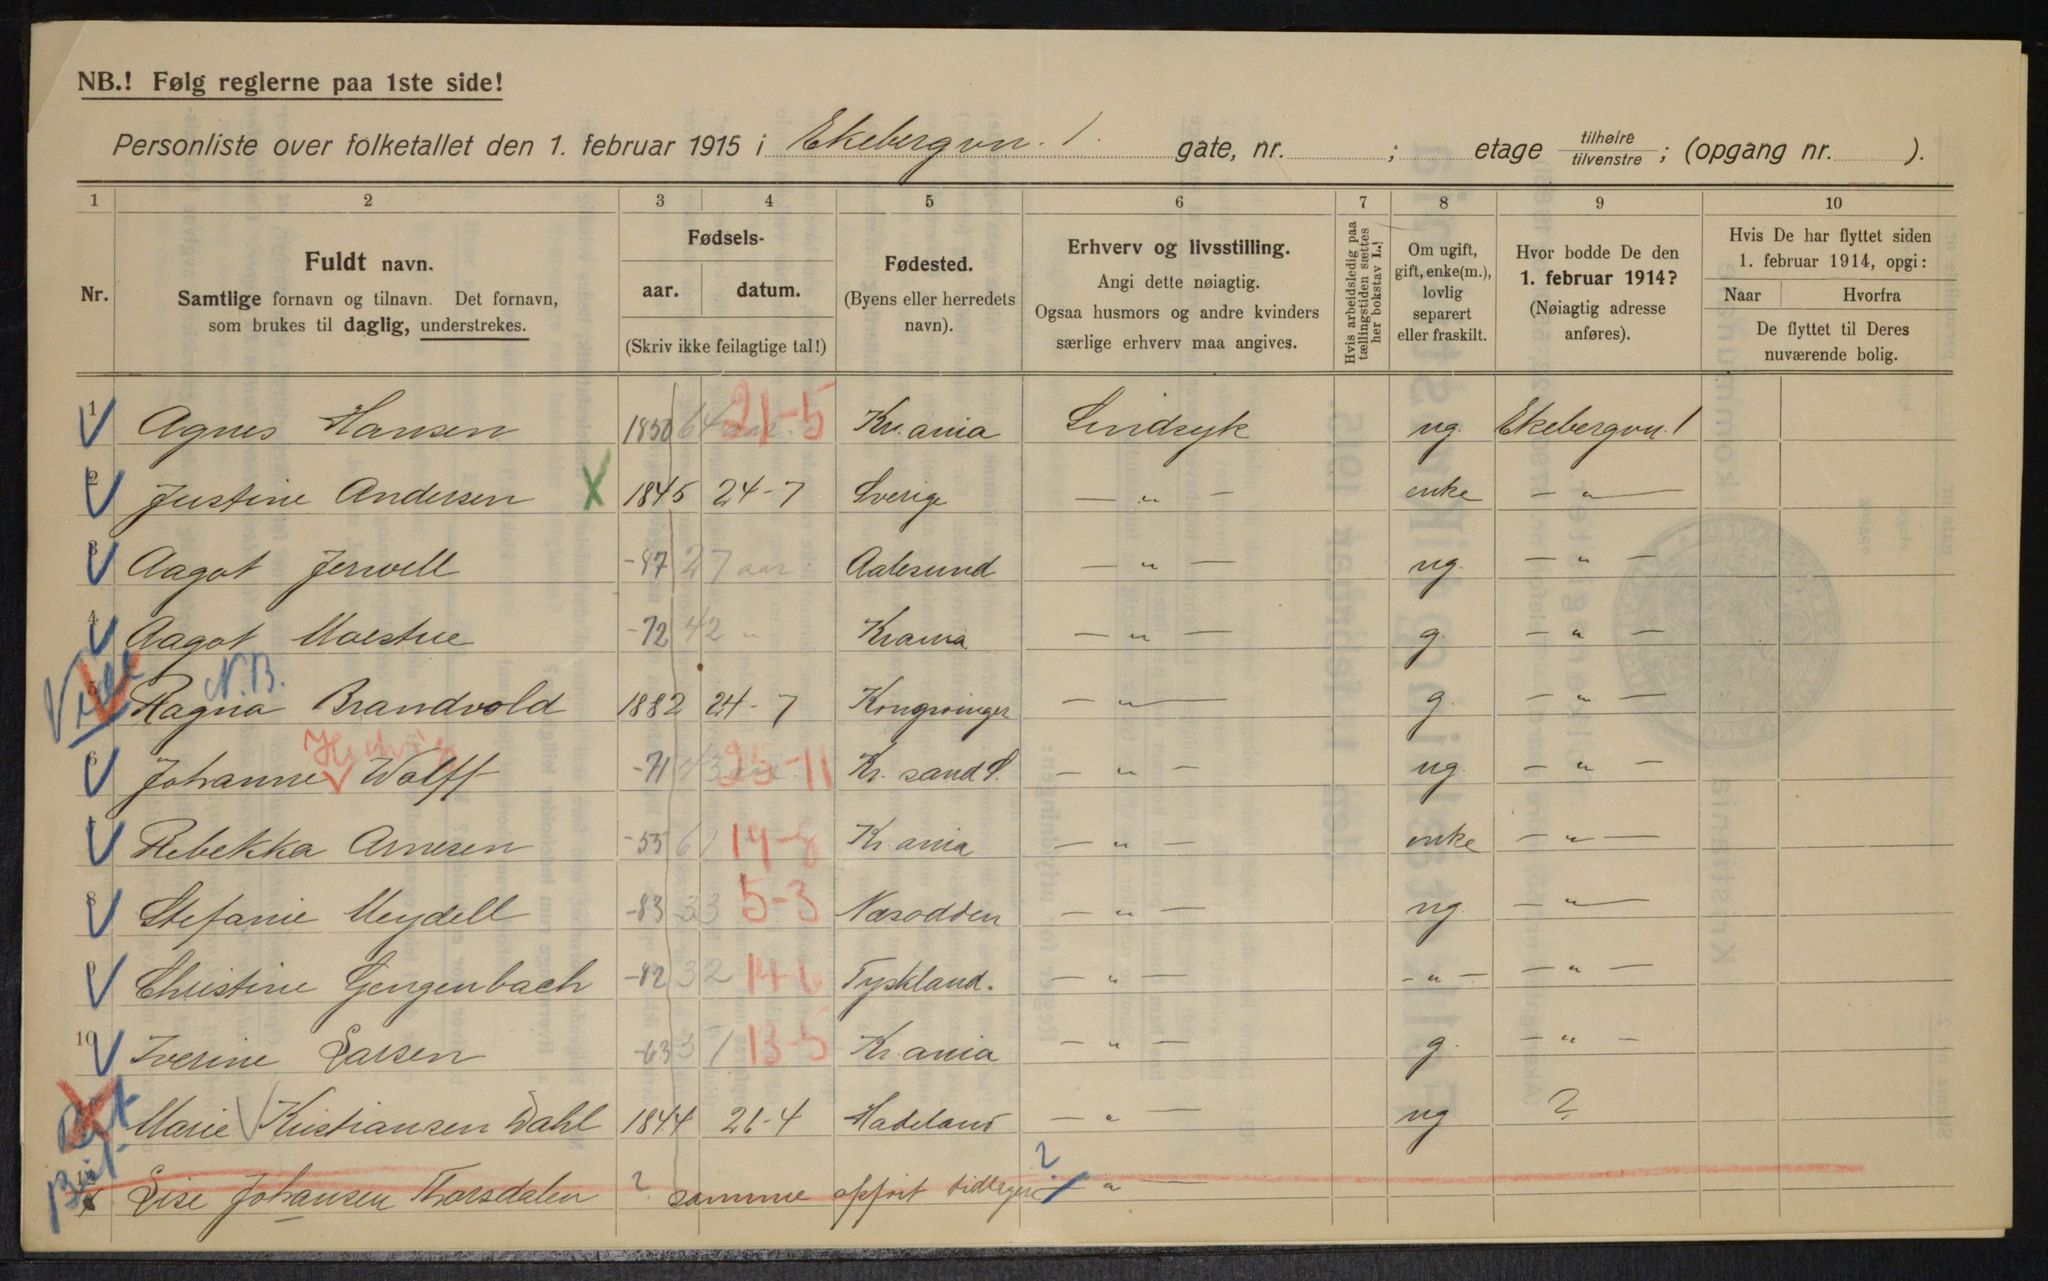 NB.! Følg reglerne paa 1ste side!
Personliste over folketallet den 1. februar 1915 i Ekebergvn. 1. gate, nr. ; etage tilhøire / tilvenstre ; (opgang nr. ).
1 2 3 4 5 6 7 8 9 10
Nr.
Fuldt navn.
Samtlige fornavn og tilnavn. Det fornavn,
som brukes til daglig, understrekes.
Fødsels-
aar. datum.
(Skriv ikke feilagtige tal!)
Fødested.
(Byens eller herredets
navn).
Erhverv og livsstilling.
Angi dette nøiagtig.
Ogsaa husmors og andre kvinders
særlige erhverv maa angives.
Hvis arbeidsledig paa
tællingstiden sættes
her bokstav L.!
Om ugift,
gift, enke(m.),
lovlig
separert
eller fraskilt.
Hvor bodde De den
1. februar 1914?
(Nøiagtig adresse
anføres).
Hvis De har flyttet siden
1. februar 1914, opgi:
Naar Hvorfra
De flyttet til Deres
nuværende bolig.
1 Agnes Hansen 1850 64 aar 21-5 Kr.ania Sindsyk ug. Ekebergvn. 1
2 Justine Andersen X 1845 24-7 Sverige — „ — enke — „ —
3 Aagot Jervell -87 27 aar Aalesund — „ — ug. — „ —
4 Aagot Moestue -72 42 „ Krania — „ — g. — „ —
N.B.
5 Ragna Brandvold 1882 24-7 Kongsvinger — „ — g. — „ —
Hedvig
6 Johanne Wolff -71 43 aar 25-11 Kr. sand S. — „ — ug. — „ —
7 Rebekka Arnesen -53 61 19-8 Kr.ania — „ — enke — „ —
8 Stefanie Meydell -83 33 5-3 Næsodden — „ — ug. — „ —
9 Christine Gengenbach -82 32 14-6 Tyskland. — „ — - „ - — „ —
10 Iverine Larsen -63 51 13-5 Kr.ania — „ — g. — „ —
Marie Kristiansen Dahl 1844 21-4 Hadeland — „ — ug ?
Lise Johansen Thorsdalen ? samme opført tidligere ? — „ —